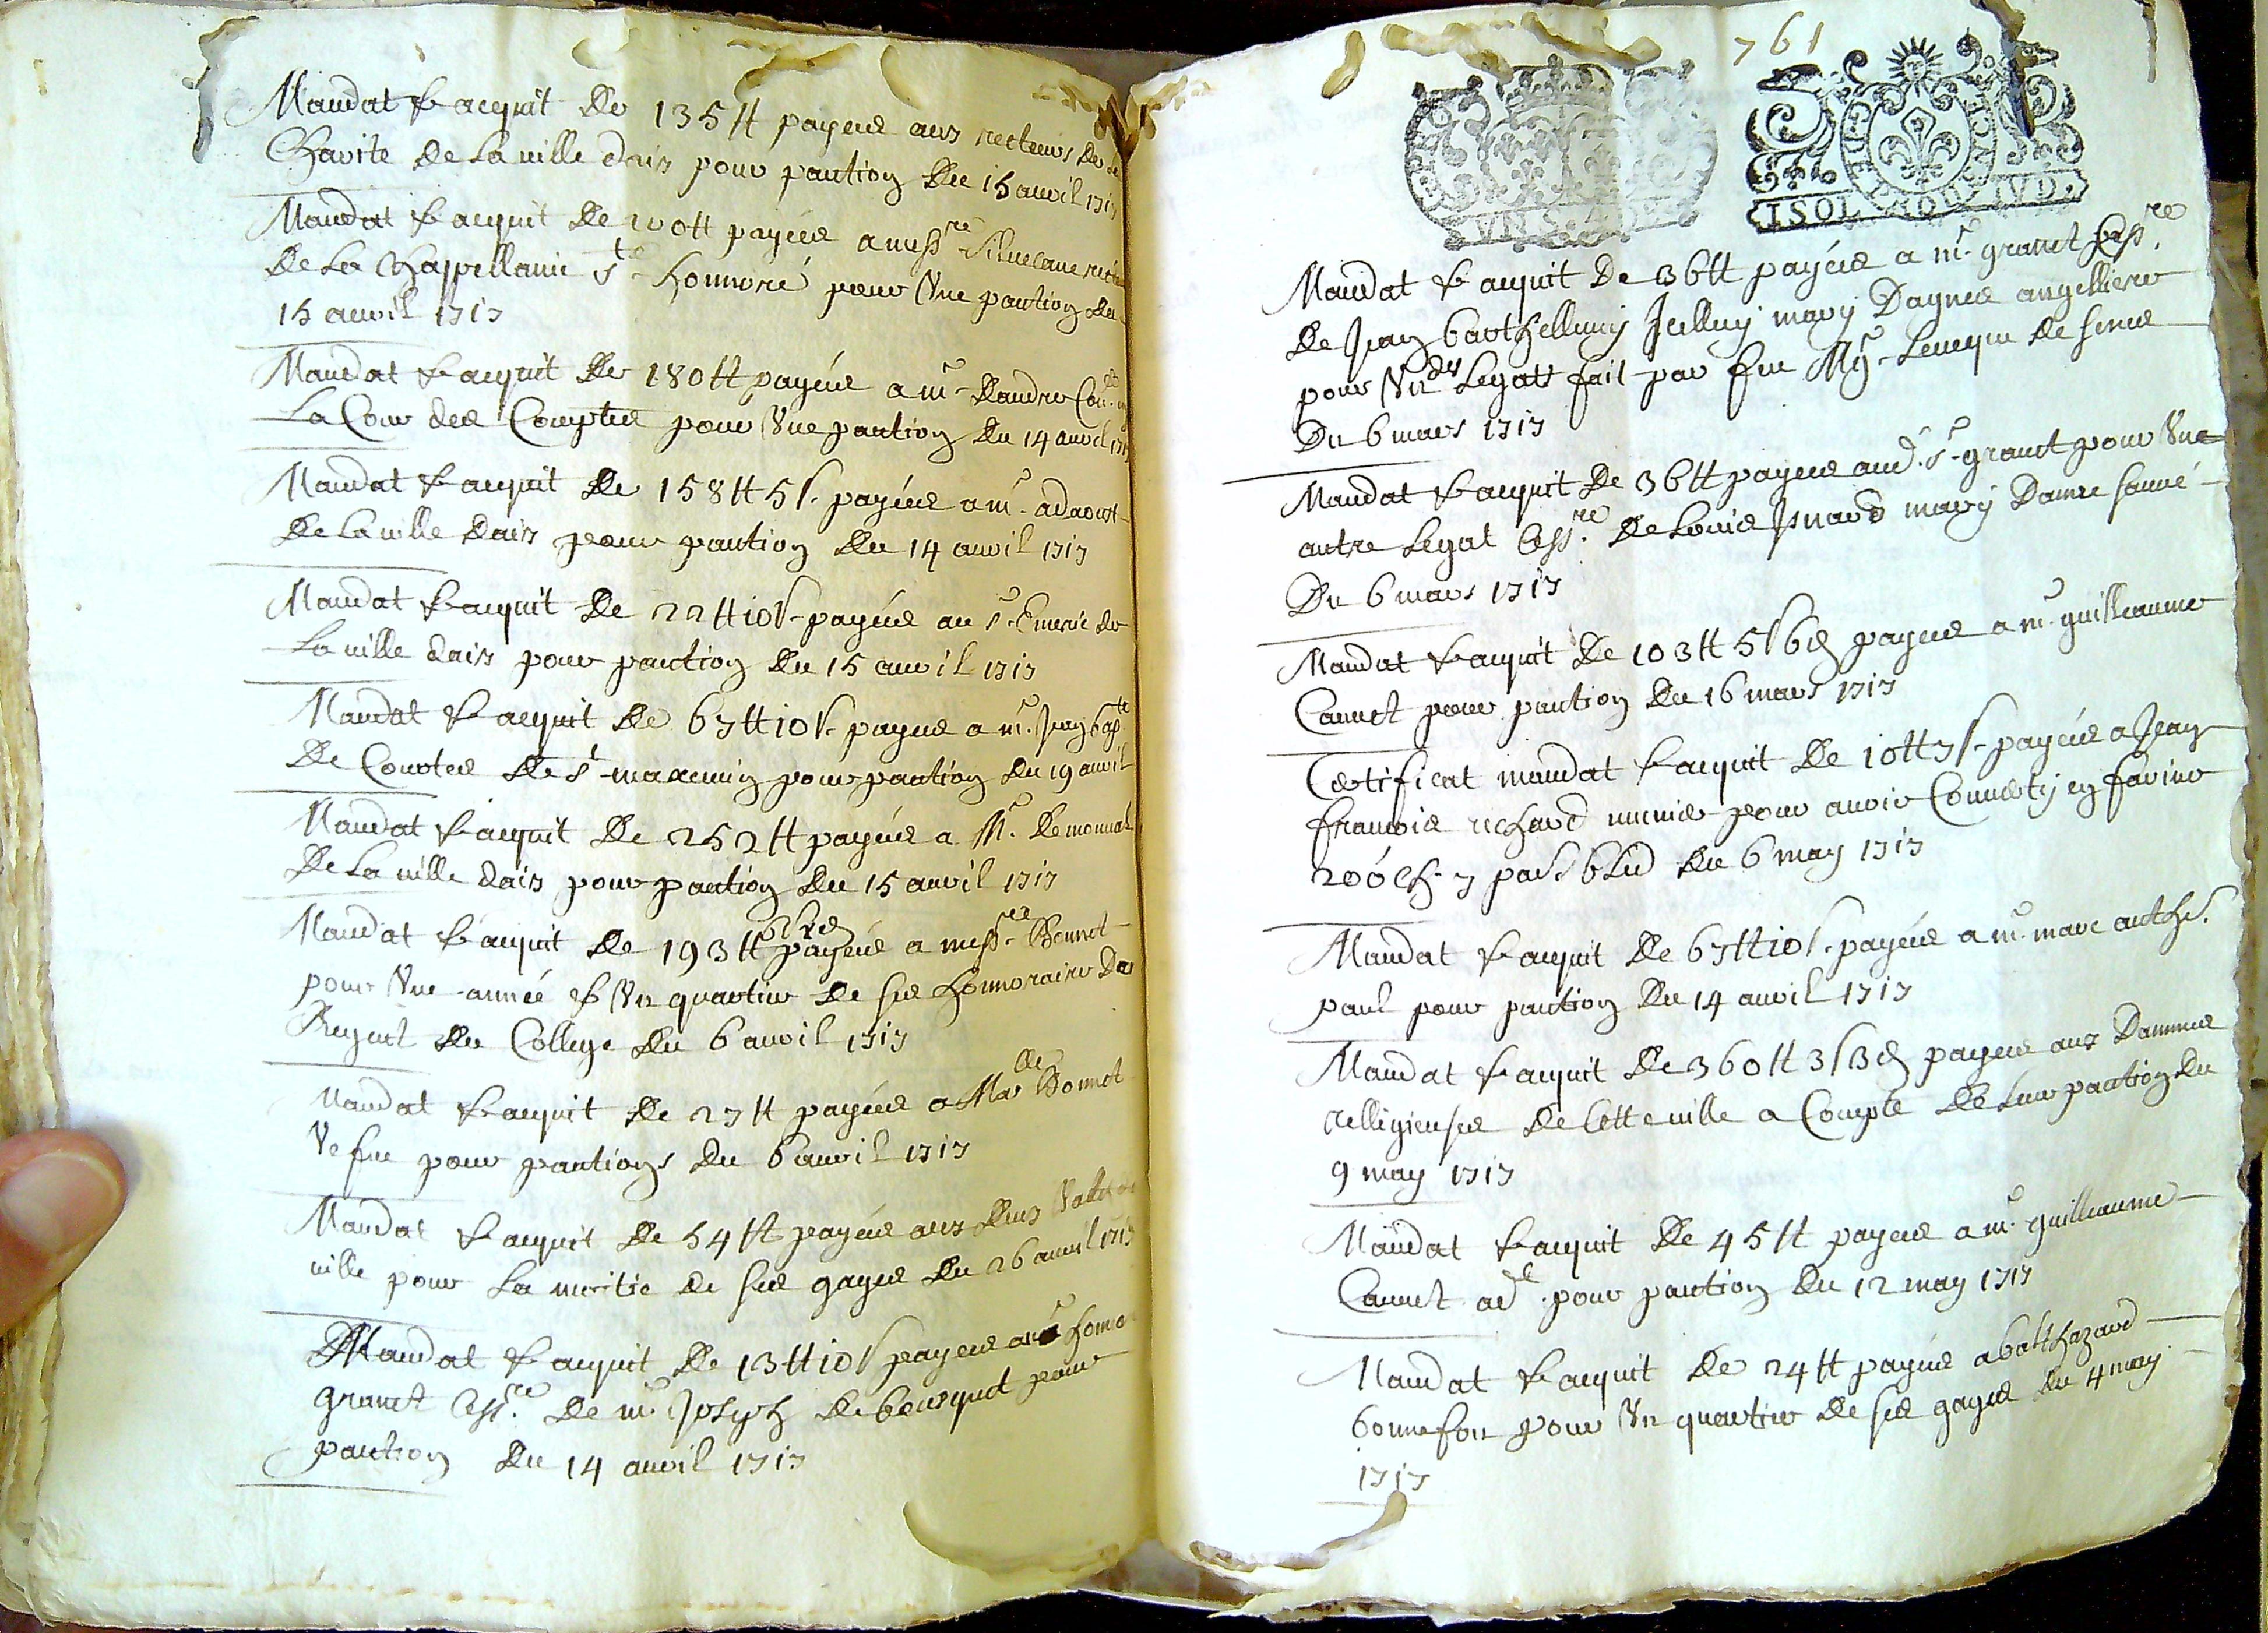 Mandat & acquit De 135 tt payees aux recteurs de la
Charite De La ville daix pour pantion Du 15 auril 1717
Mandat & acquit De 200 tt payées a messre Siluecane recteur
De La Chappellanie st honnoré pour Vne pantion du
15 auril 1717
Mandat & acquit De 180 tt payées a mr Dandre Con.er en
La Cour des Comptes pour Vne pantion Du 14 auril 1717
Mandat & acquit De 158 tt 5 s. payées a mr adaoust
De La ville Daix pour pantion Du 14 auril 1717
Mandat & acquit De 22 tt 10 s payées au sr Emeric de
La ville daix pour pantion Du 15 auril 1717
Mandat & acquit De 67 tt 10 s payees a mr Jean bapte
De Coustes De st maxemin pour pantion du 19 auril
Mandat & acquit De 252 tt payées a Mr Demonual
De La ville daix pour pantion Du 15 auril 1717
Mandat & acquit De 193 tt payées a messre Bonnet
pour Vne année & Vn quartier De ses honnoraires De
Regent Du College Du 6 auril 1717
Mandat & acquit De 27 tt payées a Made Bonnet
Vefue pour pantions Du 6 auril 1717
Mandat & acquit De 54 tt payées aux deux Valets de
uille pour La moitie de ses gages Du 26 auril 1717
Mandat & acquit De 13 tt 10 s payees a mr honno
granet Cessre De mr Joseph de bousquet pour
pantion Du 14 auril 1717
761
ISOL ADD IVD.
Mandat & acquit De 36 tt payées a mr granet Cessre
De Jean barthellemy Jullien mary Dagnes angelliere
pour Vn des Legats fait par feu Mgr Leueque De senes
Du 6 mars 1717
Mandat & acquit De 36 tt payees aud. sr granet pour Vne
autre Legat Cessre De Louis Jsnard mary Danne sauué
Du 6 mars 1717
Mandat & acquit De 103 tt 5 s 6 d payees a mr guilleaume
Cannet pour pantion Du 16 mars 1717
Certificat mandat & acquit De 10 tt 7 s payées a Jean
francois richard munier pour auoir Conuerty en farine
200 Ch. 7 pa. bled Du 6 may 1717
Mandat & acquit De 67 tt 10 s. payées a mr marc anthe.
paul pour pantion Du 14 auril 1717
Mandat & acquit De 360 tt 3 s 3 d payees aux Dammes
relligieuses De Cette uille a Compte De Leur pantion Du
9 may 1717
Mandat & acquit De 45 tt payees a mr guilleaume
Cannet adt pour pantion Du 12 may 1717
Mandat & acquit De 24 tt payées a balthazard
bonnefon pour Vn quartier De ses gages du 4 may
1717